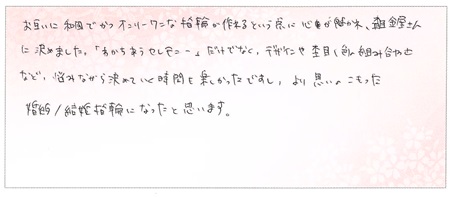 お互いに和風でかつオンリーワンな指輪が作れるという点に心を魅かれ、杢目金屋さん
に決めました。「わかちあうセレモニー」だけでなく、デザインや杢目、色の組み合わせ
など、悩みながら決めていく時間も楽しかったですし、より思いのこもった
婚約/結婚指輪になったと思います。